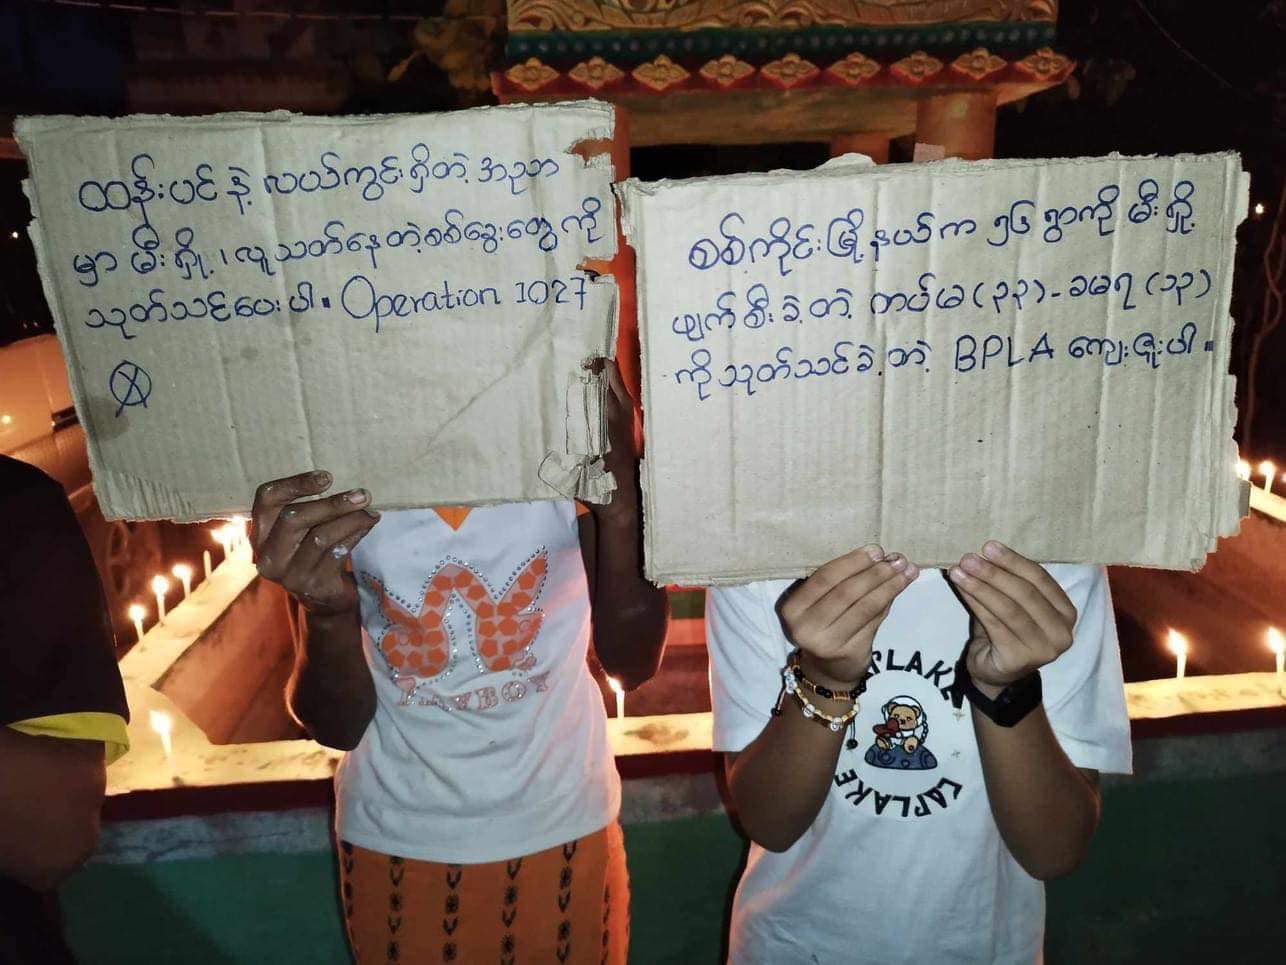 ထန်းပင်နဲ့ လယ်ကွင်းရှိတဲ့ အညာ
မှာ မီးရှို့၊ လူသတ်နေတဲ့စစ်ခွေးတွေကို
သုတ်သင်ပေးပါ။ Operation 1027
စစ်ကိုင်းမြို့နယ်က ၅၆ ရွာကို မီးရှို့
ဖျက်စီးခဲ့တဲ့ တပ်မ (၃၃) - ခမရ (၁၃)
ကို သုတ်သင်ခဲ့တဲ့ BPLA ကျေးဇူးပါ။
PLAYBOY
LAPLAKE
LAPLAKE